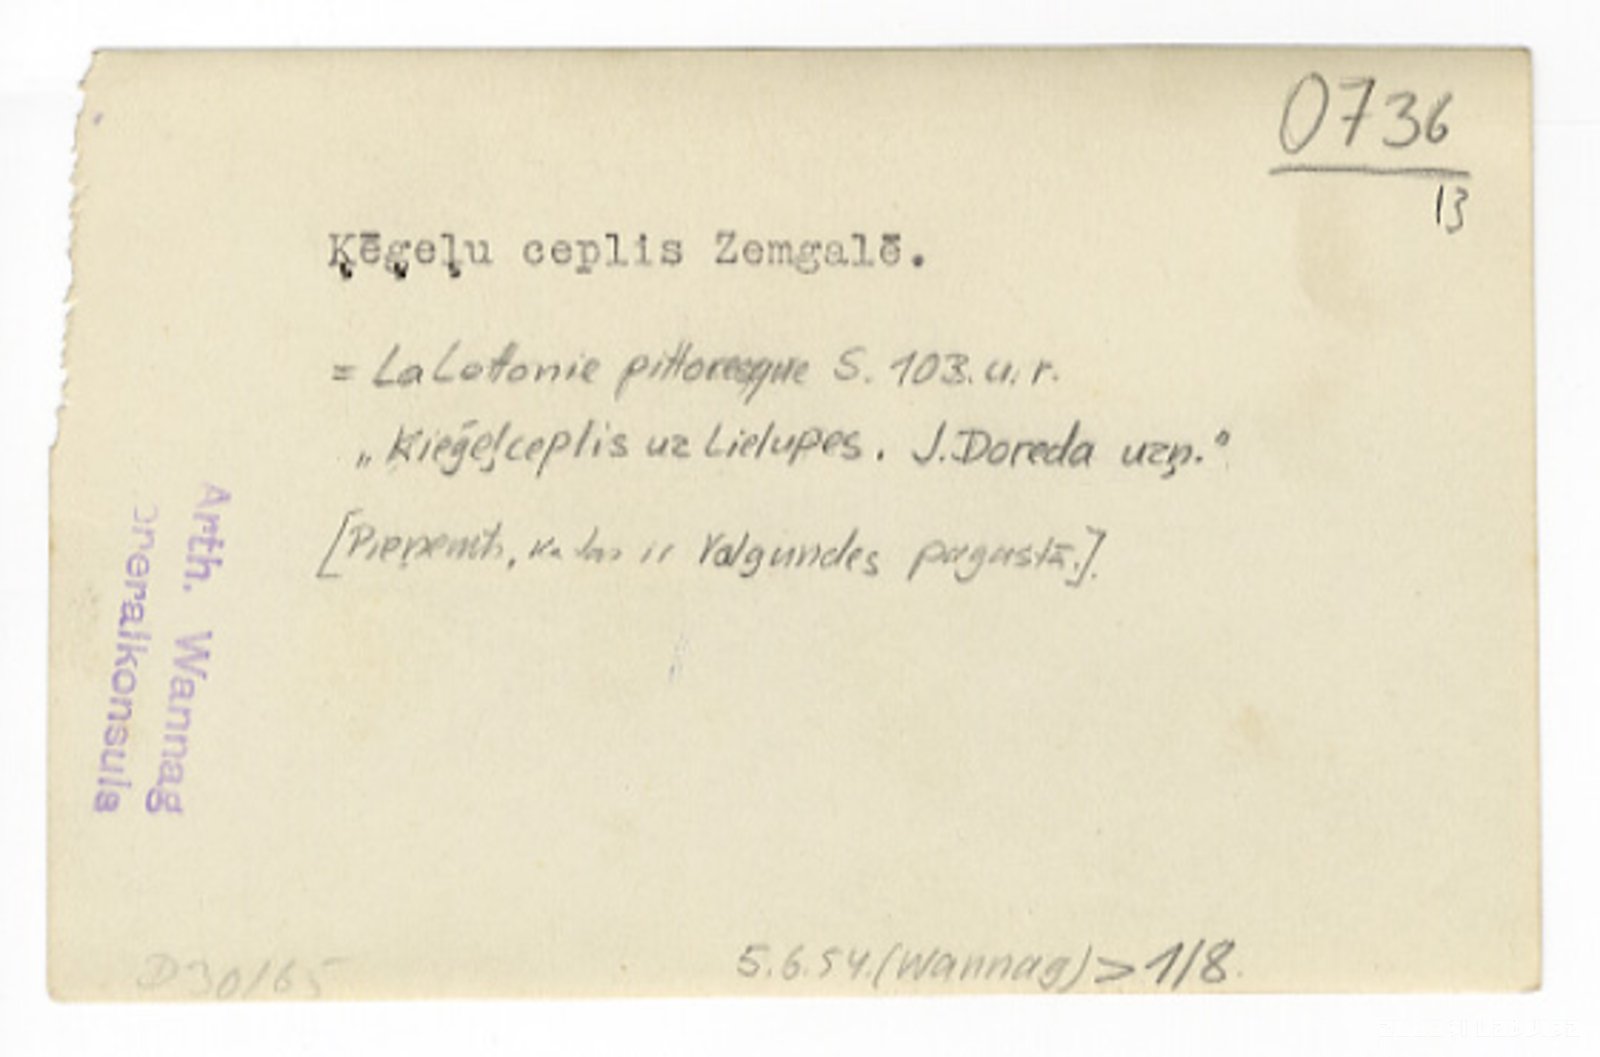 0736
13
Ķēģeļu ceplis Zemgalē.
= La Lettonie pittoresque S. 103. u. r.
„Ķieģeļceplis uz Lielupes. J. Doreda uzņ.“
[Pieņemts, ka tas ir Valgundes pagastā.]
Arth. Wannag
neralkonsuls
D30/65
5.6.54. (Wannag) > 1/8